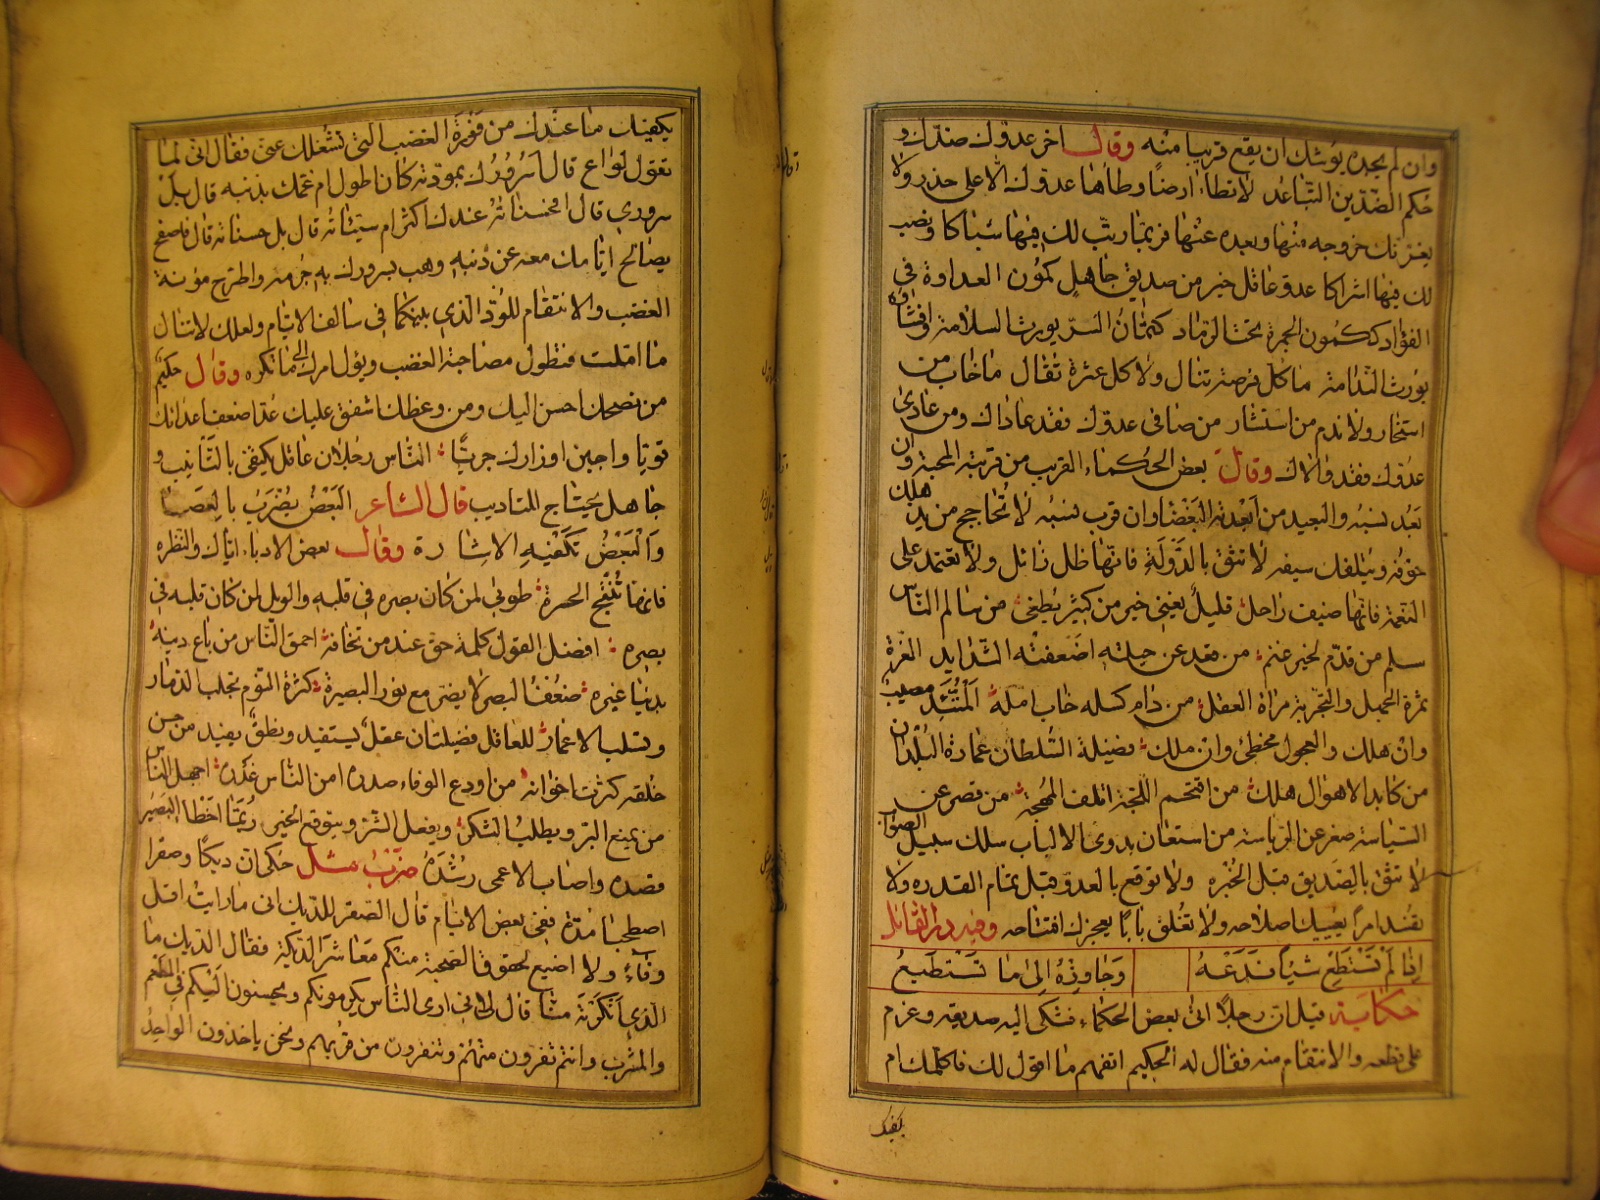 وان لم يجده يوشك ان يقع قريبا منه وقال اخر عدوّك ضدّك و
حكم الضّدّين التباعد لا تطأ ارضًا وطأها عدوّك الّا على حذر ولا
يغرّنّك خروجه منها وبعده عنها فربّما رتّب لك فيها شباكا ونصب
لك فيها اشراكا عدوّ عاقل خير من صديق جاهل كمون العداوة في
الفؤاد ككمون الجمرة تحت الرّماد كتمان السّر يورث السلامة وافشاؤه
يورث النّدامة ما كلّ فرصة تنال ولا كل عثرة تقال ما خاب من
استخار ولا ندم من استشار من صافى عدوّك فقد عاداك ومن عادى
عدوّك فقد والاك وقال بعض الحكماء القريب من قربته المحبة وان
بَعُد نسبه والبعيد من ابعدته البغضا وان قرب نسبه لا تُحاجج من يذهلك
خوفه ويتلفك سيفه لا تثق بالدّولة فانّها ظل زائل ولا تعتمد على
النّعمة فانّها ضيف راحل قليلٌ يغنى خير من كثير يُطغى من سالم النّاس
سلم من قدّم الخير غنم من قعد عن حيلته اضعفته الشّدايد الغرّة
ثمرة الجهل والتجربة مرآة العقل من دام كسله خاب امله المتّئد مصيب
وان هلك والعجول مخطئ وان ملك فضيلة السّلطان عمارة البلدان
من كابد الاهوال هلك من اقتحم اللّجّة اتلف المهجة من قصر عن
السّياسة صغر عن الرياسة من استعان بذوى الالباب سلك سبيل الصواب
لا تثق بالصّديق قبل الخُبره ولا توقع بالعدوّ قبل تمام القدره ولا
تفسد امرًا يعييك اصلاحه ولا تغلق بابًا يعجزك افتتاحه ولله درّ القائل
اذا لم تَسْتَطِع شيأ فَدَعْهُ وَجَاوِزْهُ الى ما تَسْتَطيعُ
حكاية قيل ان رجلًا اتى بعض الحكماء فشكى اليه صديقه وعزم
على قطعه والانتقام منه فقال له الحكيم اتفهم ما اقول لك فاكلّمك ام
يكفيك
يكفيك ما عندك من فَوْرَة الغضب التى تشغلك عنى فقال انى لما
تقول لواع قال أسرورك بمودّته كان اطول ام غمّك بذنبه قال بل
سرورى قال افحسناته عندك اكثر ام سيّئاته قال بل حسناته قال فاصفح
بصالح ايّامك معه عن ذنبه وهب لسرورك به جُرمه واطرح مؤنة
الغضب والانتقام للودّ الّذى بينكما فى سالف الايّام ولعلك لا تنال
ما املت فتطول مصاحبة الغضب ويؤل امرك الى ما تكره وقال حكيم
من نصحك احسن اليك ومن وعظك اشفق عليك عُدّ اضعف اعدائك
قويّا واجبن اوزارك جريّا النّاس رجلان عاقل يكتفى بالتّأنيب و
جاهل يحتاج للتاديب قال الشّاعر البَعْضُ يُضْرَبُ بالعصا
وَالْبَعْضُ تَكْفيهِ الاِشارة وقال بعض الادباء ايّاك والنّظره
فانّها تُنْتِجُ الحسرة طوبى لمن كان بصره فى قلبه والويل لمن كان قلبه فى
بصره افضل القول كلمة حق عند من تخافه احمق النّاس من باع دينهُ
بدنيا غيره ضعف البصر لا يضر مع نور البصيرة كثرة النّوم تجلب الدّمار
وتسلب الاعمار للعاقل فضيلتان عقلٌ يستفيد ونطقٌ يفيد من حسن
خلقه كثرت اخوانه من اودع الوفاء صدره امن النّاس غدره اجهل النّاس
من يمنع البرّ ويطلب الشكر ويفعل الشرّ ويتوقع الخير ربّما اخطأ البصير
قصده واصاب الاعمى رشده ضَرْبُ مثل حكى ان ديكًا وصقرا
اصطحبا مدّة ففى بعض الايام قال الصّقر للدّيك انى ما رايت اقلّ
وفاءً ولا اضيع لحقوق الصّحبة منكم معاشر الدّيكة فقال الدّيك ما
الّذى أنكرته منّا قال لانى ارى النّاس يكرمونكم ويحسنون اليكم فى المطعم
والمشرب وانتم تفرون منهُم وتنفرون من قربهم ونحن ياخذون الواحِدُ